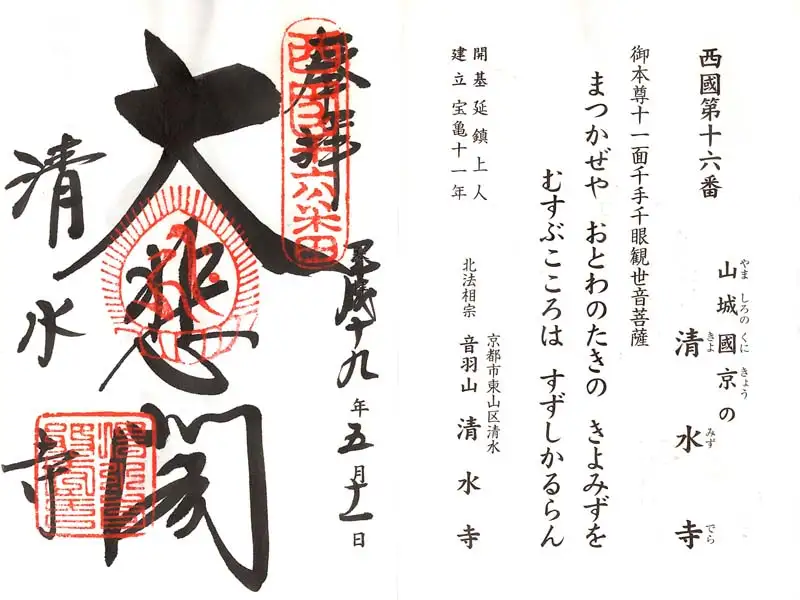 西國第十六番
山城國京の
やましろのくにきょう
清水寺
きよみずでら
御本尊十一面千手千眼観世音菩薩
まつかぜや おとわのたきの きよみずを
むすぶこころは すずしかるらん
開基延鎮上人
建立宝亀十一年
京都市東山区清水
北法相宗 音羽山 清水寺
奉拝
平成十九年五月十一日
大悲閣
清水寺